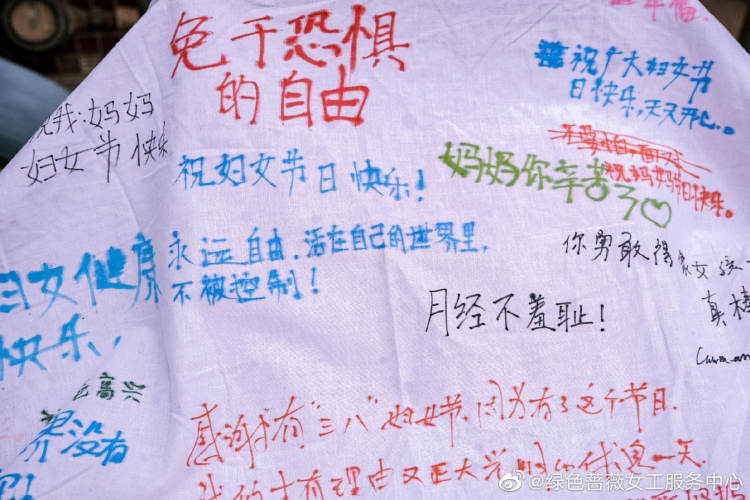 幸福.
免于恐惧
的自由
祝广大妇女节
日快乐,天天开心。
祝我:妈妈
妇女节快乐
祝妇女节日快乐!
妈妈你辛苦了♡
祝妈妈节日快乐。
永远自由,活在自己的世界里,
不被控制!
你勇敢得
女孩
真棒
妇女健康
快乐,
月经不羞耻!
高兴
界没有
感谢有“三八”妇女节,因为有了这个节日.
我们才有理由又正大光明的休息一天
@绿色蔷薇女工服务中心